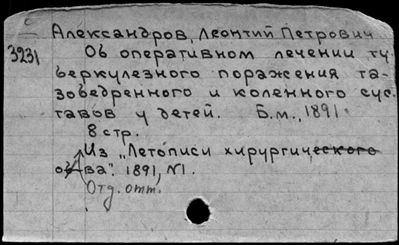 Александров, Леонтий Петрович
3231
Об оперативном лечении ту
беркулезного поражения та-
зобедренного и коленного сус-
тавов у детей. Б.м., 1891.
8 стр.
Из „Летописи хирургического
об-ва". 1891, №1.
Отд. отт.